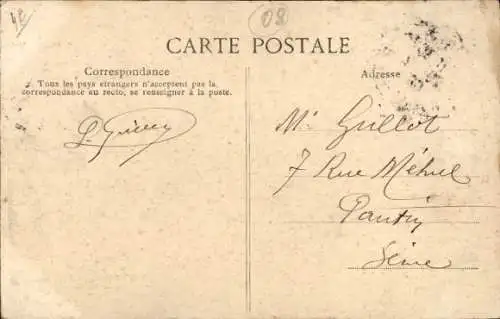 42
08
CARTE POSTALE
Correspondance
Tous les pays étrangers n'acceptent pas la
correspondance au recto, se renseigner à la poste.
Adresse
Mr Grillot
7 Rue Méhul
Pantin
Seine